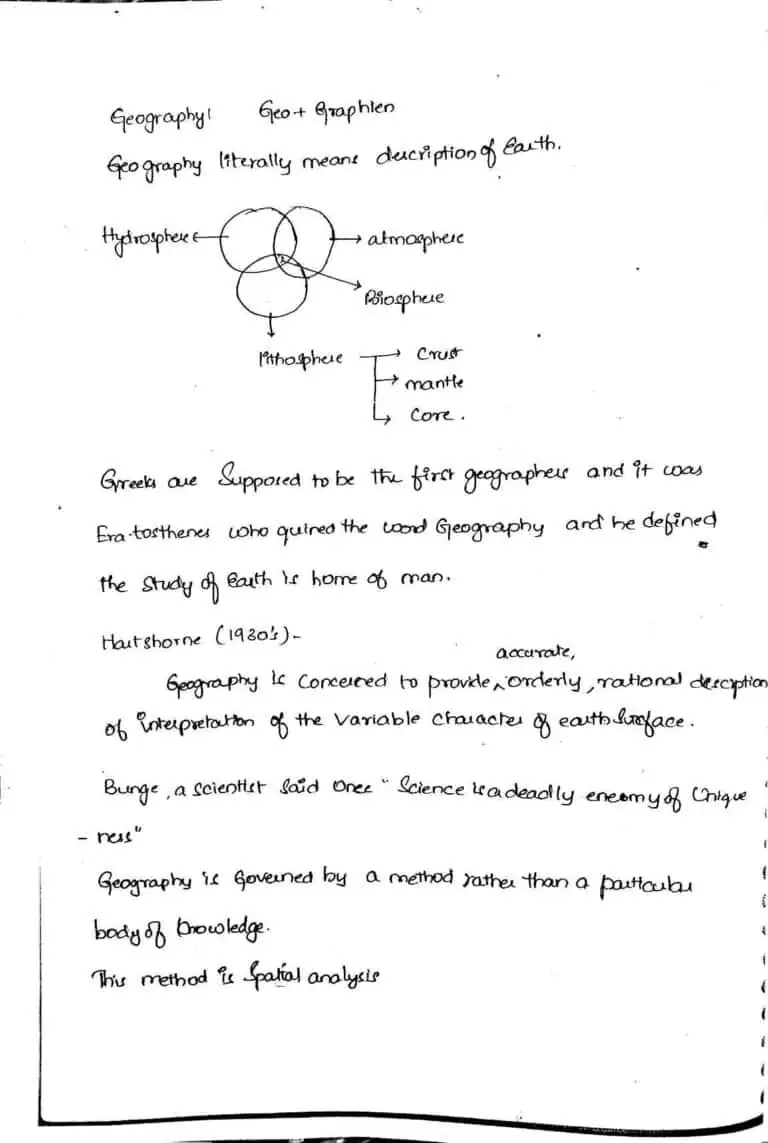 Geography: Geo + Graphien
Geography literally means description of Earth.
Hydrosphere
atmosphere
Biosphere
lithosphere
Crust
mantle
Core.
Greeks are Supposed to be the first geographers and it was
Era-tosthenes who quired the word Geography and he defined
the study of Earth is home of man.
Hartshorne (1930's) -
accurate,
Geography is concerned to provide, orderly, rational desciption
of interpretation of the variable character of earth surface.
Bunge, a scientist said once "Science is a deadly eneomy of Unique
- ness"
Geography is Governed by a method rather than a particular
body of knowledge.
This method is spatial analysis